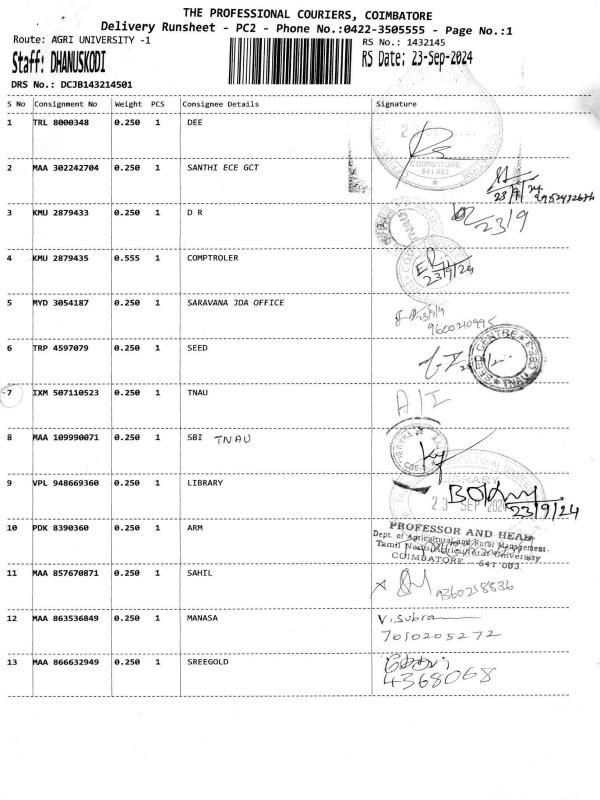 THE PROFESSIONAL COURIERS, COIMBATORE
Delivery Runsheet - PC2 - Phone No.:0422-3505555 - Page No.:1
Route: AGRI UNIVERSITY -1
RS No.: 1432145
Staff: DHANUSKODI
RS Date: 23-Sep-2024
DRS No.: DCJB143214501
S No Consignment No Weight PCS Consignee Details Signature
1 TRL 8000348 0.250 1 DEE
COIMBATORE
641 003
2 MAA 302242704 0.250 1 SANTHI ECE GCT
23/9/24
3 KMU 2879433 0.250 1 D R
23/9
4 KMU 2879435 0.555 1 COMPTROLER
23/9/24
5 MYD 3054187 0.250 1 SARAVANA JDA OFFICE
9600210995
6 TRP 4597079 0.250 1 SEED
SEED CENTRE
7 IXM 507110523 0.250 1 TNAU
A/I
8 MAA 109990071 0.250 1 SBI TNAU
9 VPL 948669360 0.250 1 LIBRARY
23 SEP 2024
23/9/24
10 PDK 8390360 0.250 1 ARM
PROFESSOR AND HEAD
Dept. of Agricultural and Rural Management
Tamil Nadu Agricultural University
COIMBATORE 641 003
11 MAA 857670871 0.250 1 SAHIL
9360258836
12 MAA 863536849 0.250 1 MANASA
V. Subra
7010205272
13 MAA 866632949 0.250 1 SREEGOLD
4368068